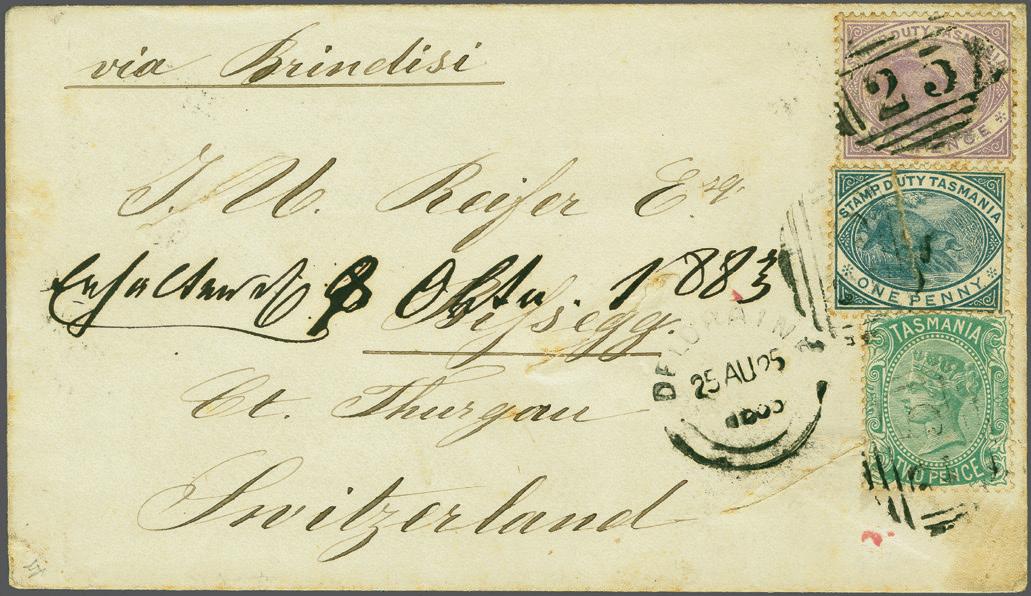 via Brindisi
J. U. Reifer Esq.
Erhalten d 8 Oktu. 1883
Bissegg.
Ct. Thurgau
Switzerland
STAMP DUTY TASMANIA
SIXPENCE
23
STAMP DUTY TASMANIA
ONE PENNY
TASMANIA
TWO PENCE
DELORAINE
25 AU 25
1883